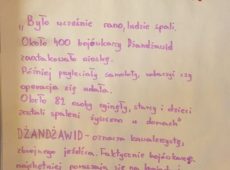 „Było wcześnie rano, ludzie spali.
Około 400 bojówkarzy Dżandżawid
zaatakowało wioskę.
Później przyleciały samoloty, zobaczyć czy
operacja się udała.
Około 82 osoby zginęły, starcy i dzieci
zostali spaleni żywcem w domach"
DŻANDŻAWID - oznacza kawalerzystę,
zbrojnego jeźdźca. Faktycznie bojówkarze
najchętniej poruszają się na